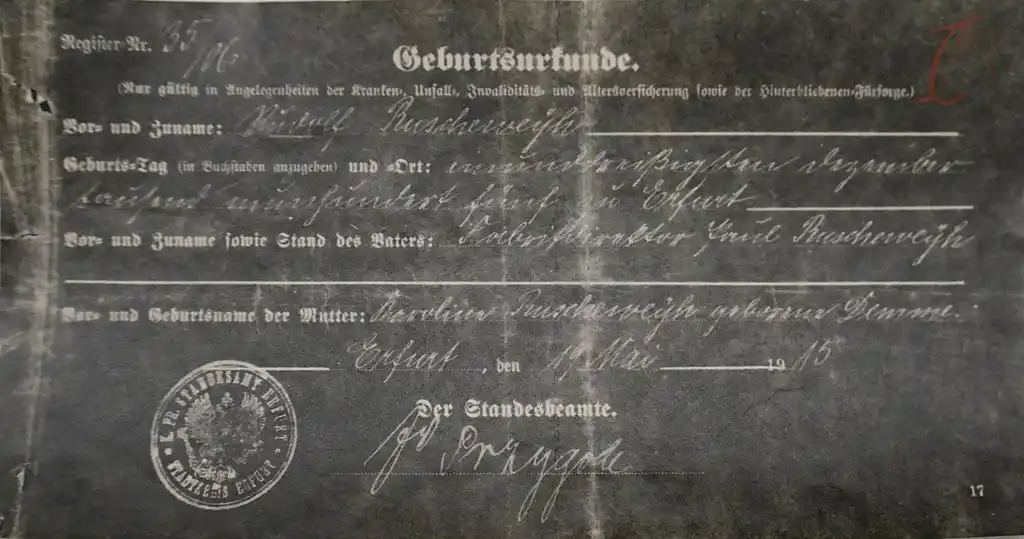 Register-Nr. 35/06.
Geburtsurkunde.
(Nur gültig in Angelegenheiten der Kranken-, Unfall-, Invaliditäts- und Altersversicherung sowie der Hinterbliebenen-Fürsorge.)
Vor- und Zuname: Rudolf Ruscheweyh
Geburts-Tag (in Buchstaben anzugeben) und -Ort: einunddreißigsten Dezember
tausend neunhundert fünf zu Erfurt
Vor- und Zuname sowie Stand des Vaters: Fabrikdirektor Paul Ruscheweyh
Vor- und Geburtsname der Mutter: Karoline Ruscheweyh geborene Demme.
Erfurt, den 19 Mai 1915
Der Standesbeamte.
K. PR. STANDESAMT ERFURT
STADTKREIS ERFURT
17